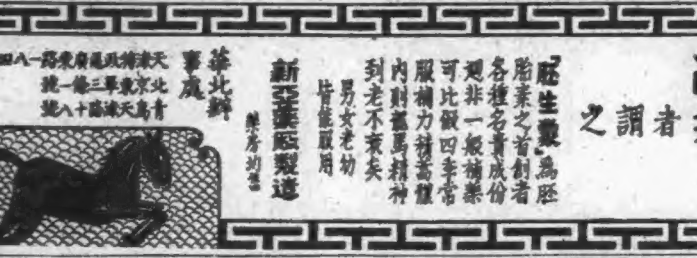 者謂之
「胚生蒙」為胚
胎素之首創者
各種名貴成份
迥非一般補藥
可比做四季常
服補力特高體
內則龍馬精神
到老不衰矣
男女老幼
皆能服用
新亞藥廠製造
藥房均售
華北辦
事處
天津特政區廣東路一八四
北京東單三條一號
青島天津路十八號